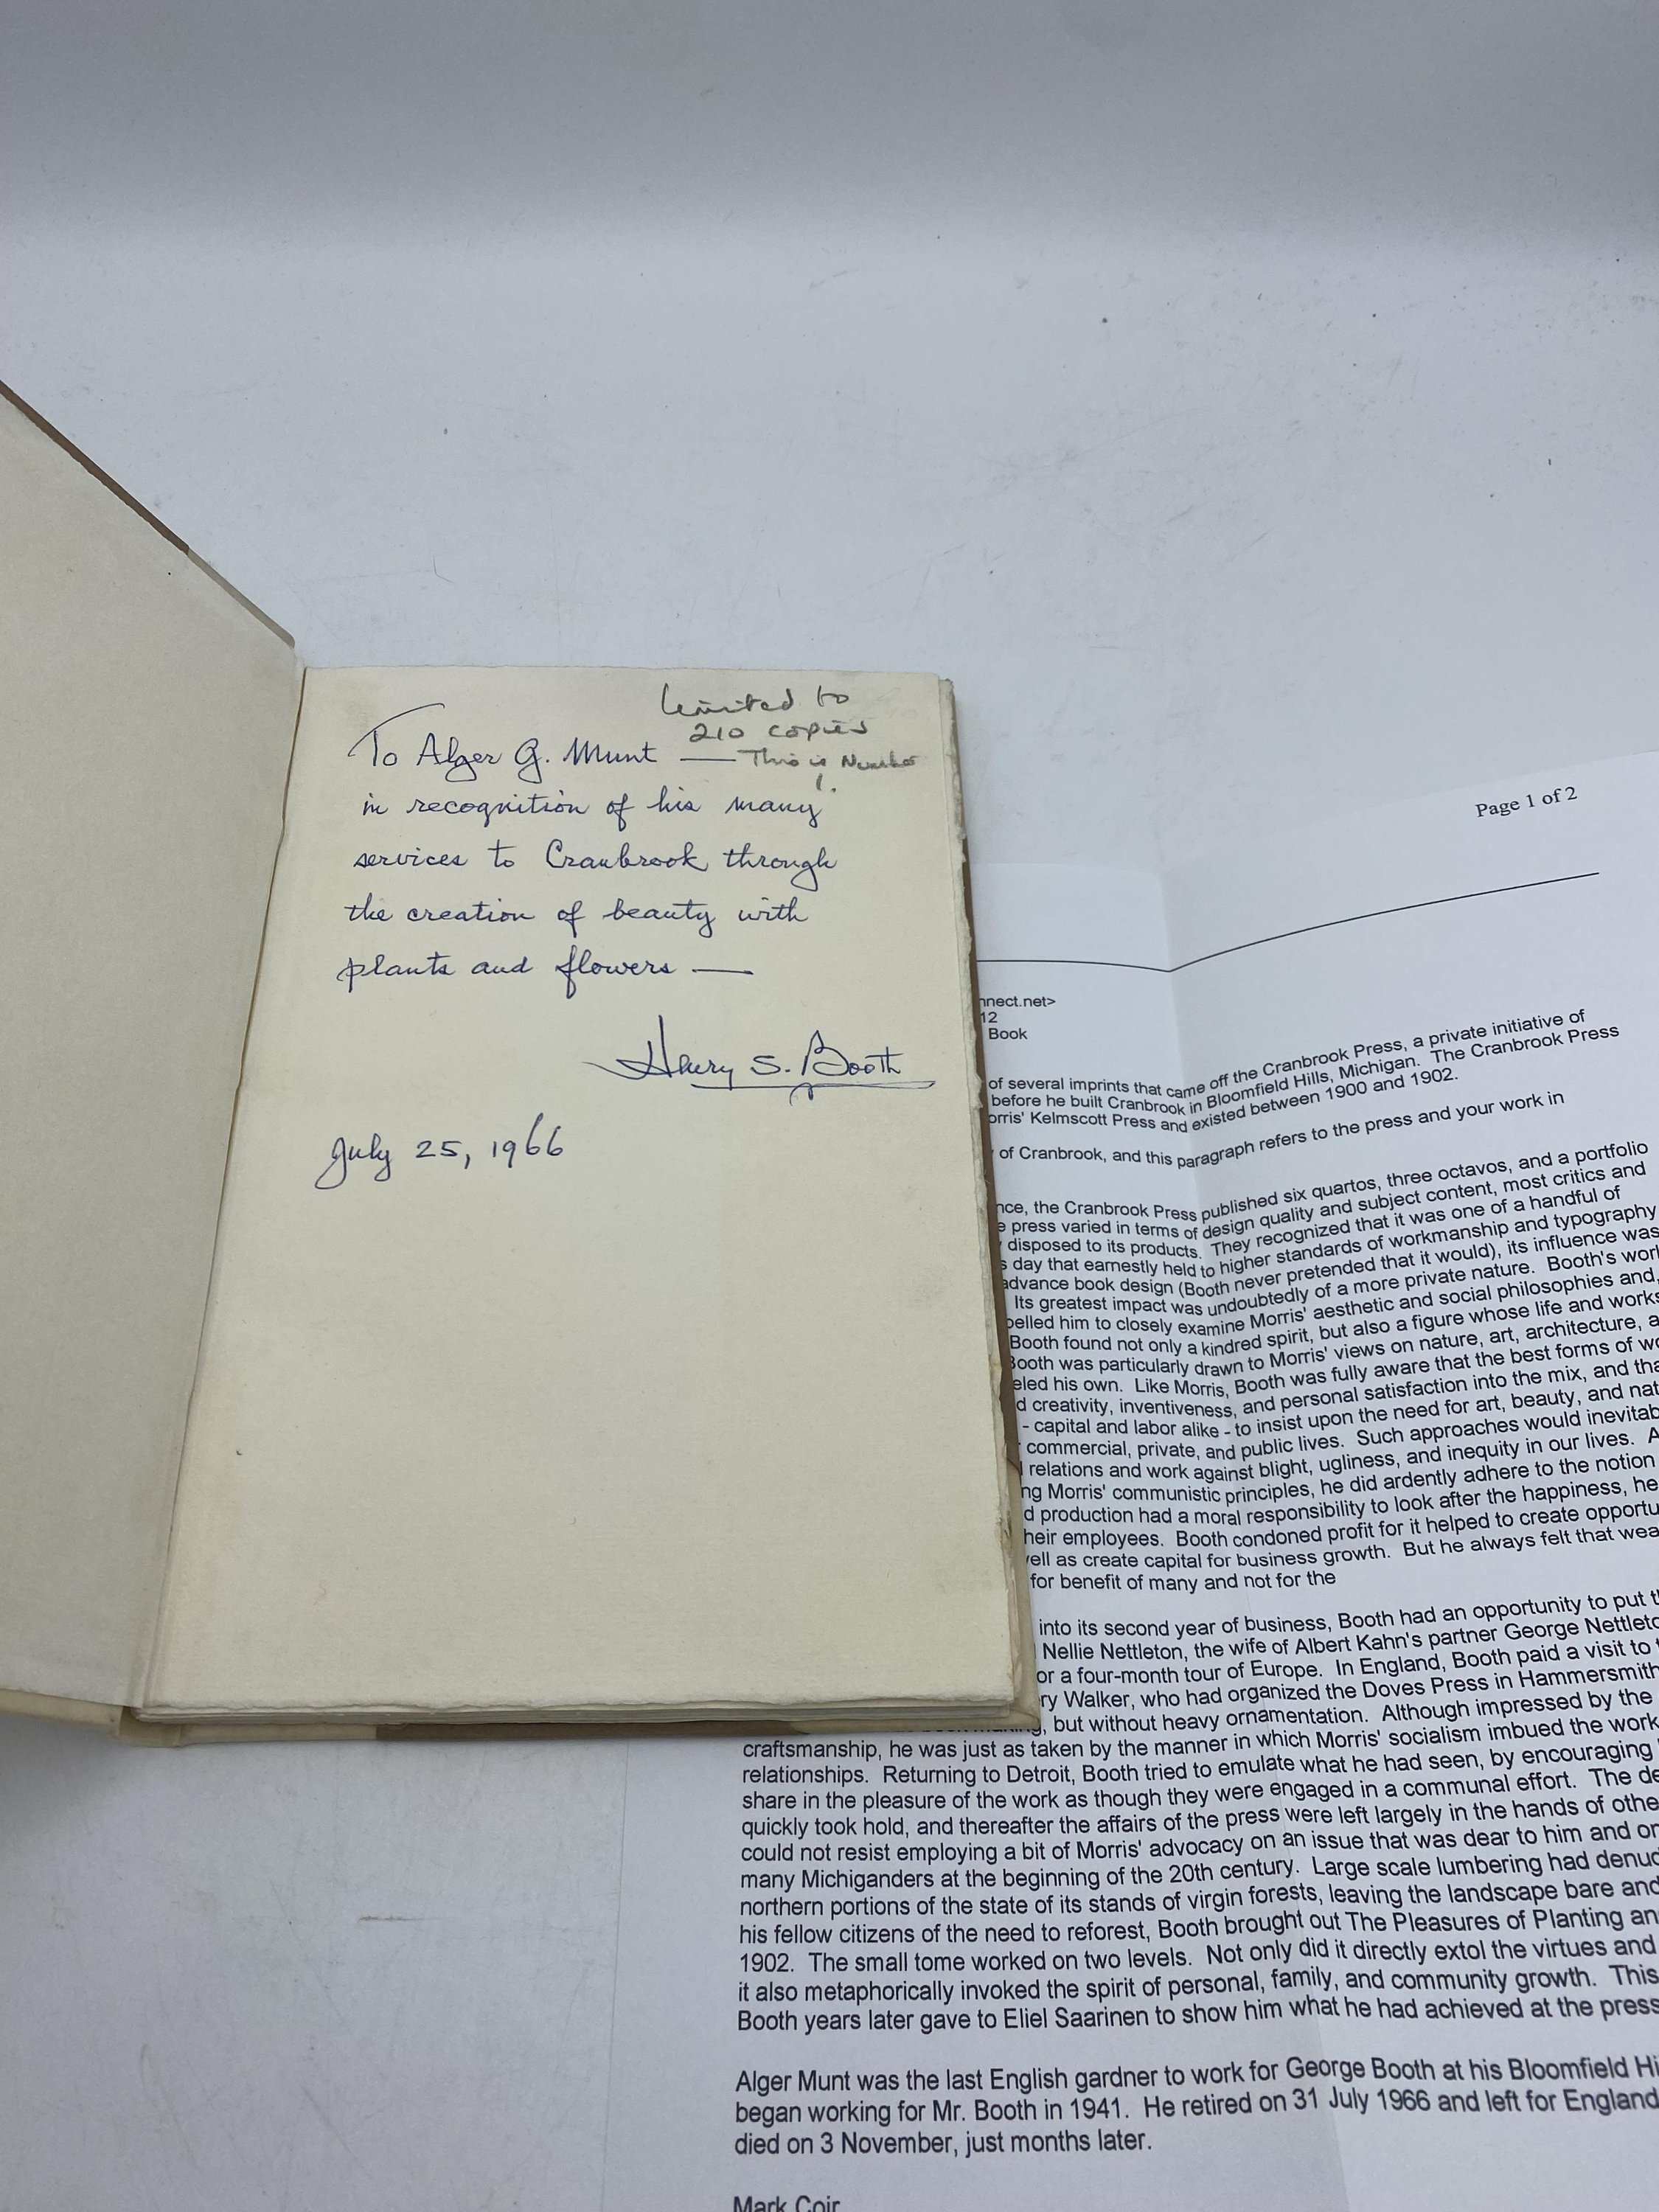 Limited to
210 copies
To Alger G. Munt — This is Number
1.
in recognition of his many
services to Cranbrook through
the creation of beauty with
plants and flowers —
Henry S. Booth
July 25, 1966
Page 1 of 2
nnect.net>
12
Book
of several imprints that came off the Cranbrook Press, a private initiative of
before he built Cranbrook in Bloomfield Hills, Michigan. The Cranbrook Press
orris' Kelmscott Press and existed between 1900 and 1902.
of Cranbrook, and this paragraph refers to the press and your work in
nce, the Cranbrook Press published six quartos, three octavos, and a portfolio
e press varied in terms of design quality and subject content, most critics and
disposed to its products. They recognized that it was one of a handful of
s day that earnestly held to higher standards of workmanship and typography
advance book design (Booth never pretended that it would), its influence was
Its greatest impact was undoubtedly of a more private nature. Booth's wor
pelled him to closely examine Morris' aesthetic and social philosophies and,
Booth found not only a kindred spirit, but also a figure whose life and works
Booth was particularly drawn to Morris' views on nature, art, architecture, a
eled his own. Like Morris, Booth was fully aware that the best forms of wo
d creativity, inventiveness, and personal satisfaction into the mix, and tha
- capital and labor alike - to insist upon the need for art, beauty, and nat
commercial, private, and public lives. Such approaches would inevitab
l relations and work against blight, ugliness, and inequity in our lives. A
ng Morris' communistic principles, he did ardently adhere to the notion
d production had a moral responsibility to look after the happiness, he
heir employees. Booth condoned profit for it helped to create opportu
vell as create capital for business growth. But he always felt that wea
for benefit of many and not for the
into its second year of business, Booth had an opportunity to put t
Nellie Nettleton, the wife of Albert Kahn's partner George Nettleto
or a four-month tour of Europe. In England, Booth paid a visit to
ry Walker, who had organized the Doves Press in Hammersmith
, but without heavy ornamentation. Although impressed by the
craftsmanship, he was just as taken by the manner in which Morris' socialism imbued the work
relationships. Returning to Detroit, Booth tried to emulate what he had seen, by encouraging
share in the pleasure of the work as though they were engaged in a communal effort. The de
quickly took hold, and thereafter the affairs of the press were left largely in the hands of othe
could not resist employing a bit of Morris' advocacy on an issue that was dear to him and or
many Michiganders at the beginning of the 20th century. Large scale lumbering had denud
northern portions of the state of its stands of virgin forests, leaving the landscape bare and
his fellow citizens of the need to reforest, Booth brought out The Pleasures of Planting an
1902. The small tome worked on two levels. Not only did it directly extol the virtues and
it also metaphorically invoked the spirit of personal, family, and community growth. This
Booth years later gave to Eliel Saarinen to show him what he had achieved at the press
Alger Munt was the last English gardner to work for George Booth at his Bloomfield Hi
began working for Mr. Booth in 1941. He retired on 31 July 1966 and left for England
died on 3 November, just months later.
Mark Coir